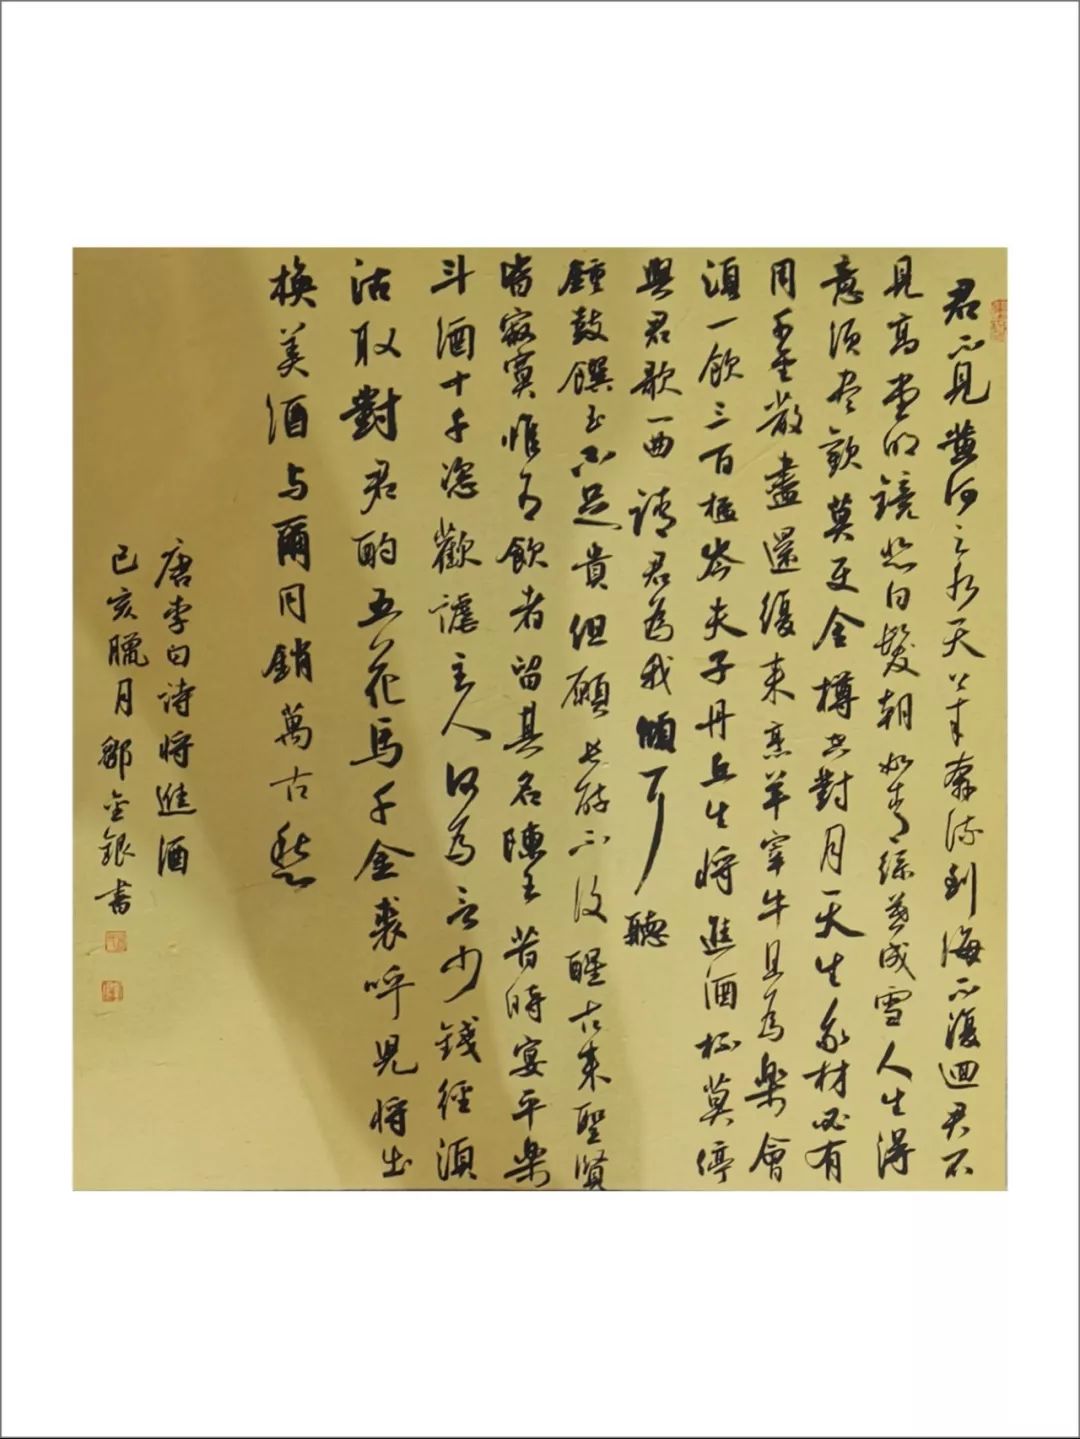 君不見黄河之水天上来奔流到海不復迴君不
見高堂明鏡悲白髮朝如青絲暮成雪人生得
意須尽歡莫更金樽空對月天生我材必有
用千金散盡還復来烹羊宰牛且為樂會
須一飲三百杯岑夫子丹丘生將進酒杯莫停
與君歌一曲請君為我傾耳聽
鍾鼓饌玉不足貴但願長醉不復醒古来聖賢
皆寂寞惟有飲者留其名陳王昔時宴平樂
斗酒十千恣歡謔主人何為言少錢徑須
沽取對君酌五花馬千金裘呼兒將出
換美酒与爾同銷萬古愁
唐李白诗将進酒
己亥臘月鄒金銀書